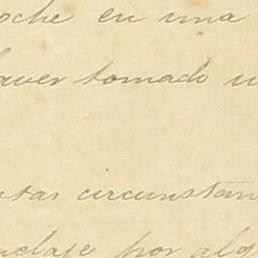 oche en una
haver tomado u
ntas circunstan
nclaje por alg